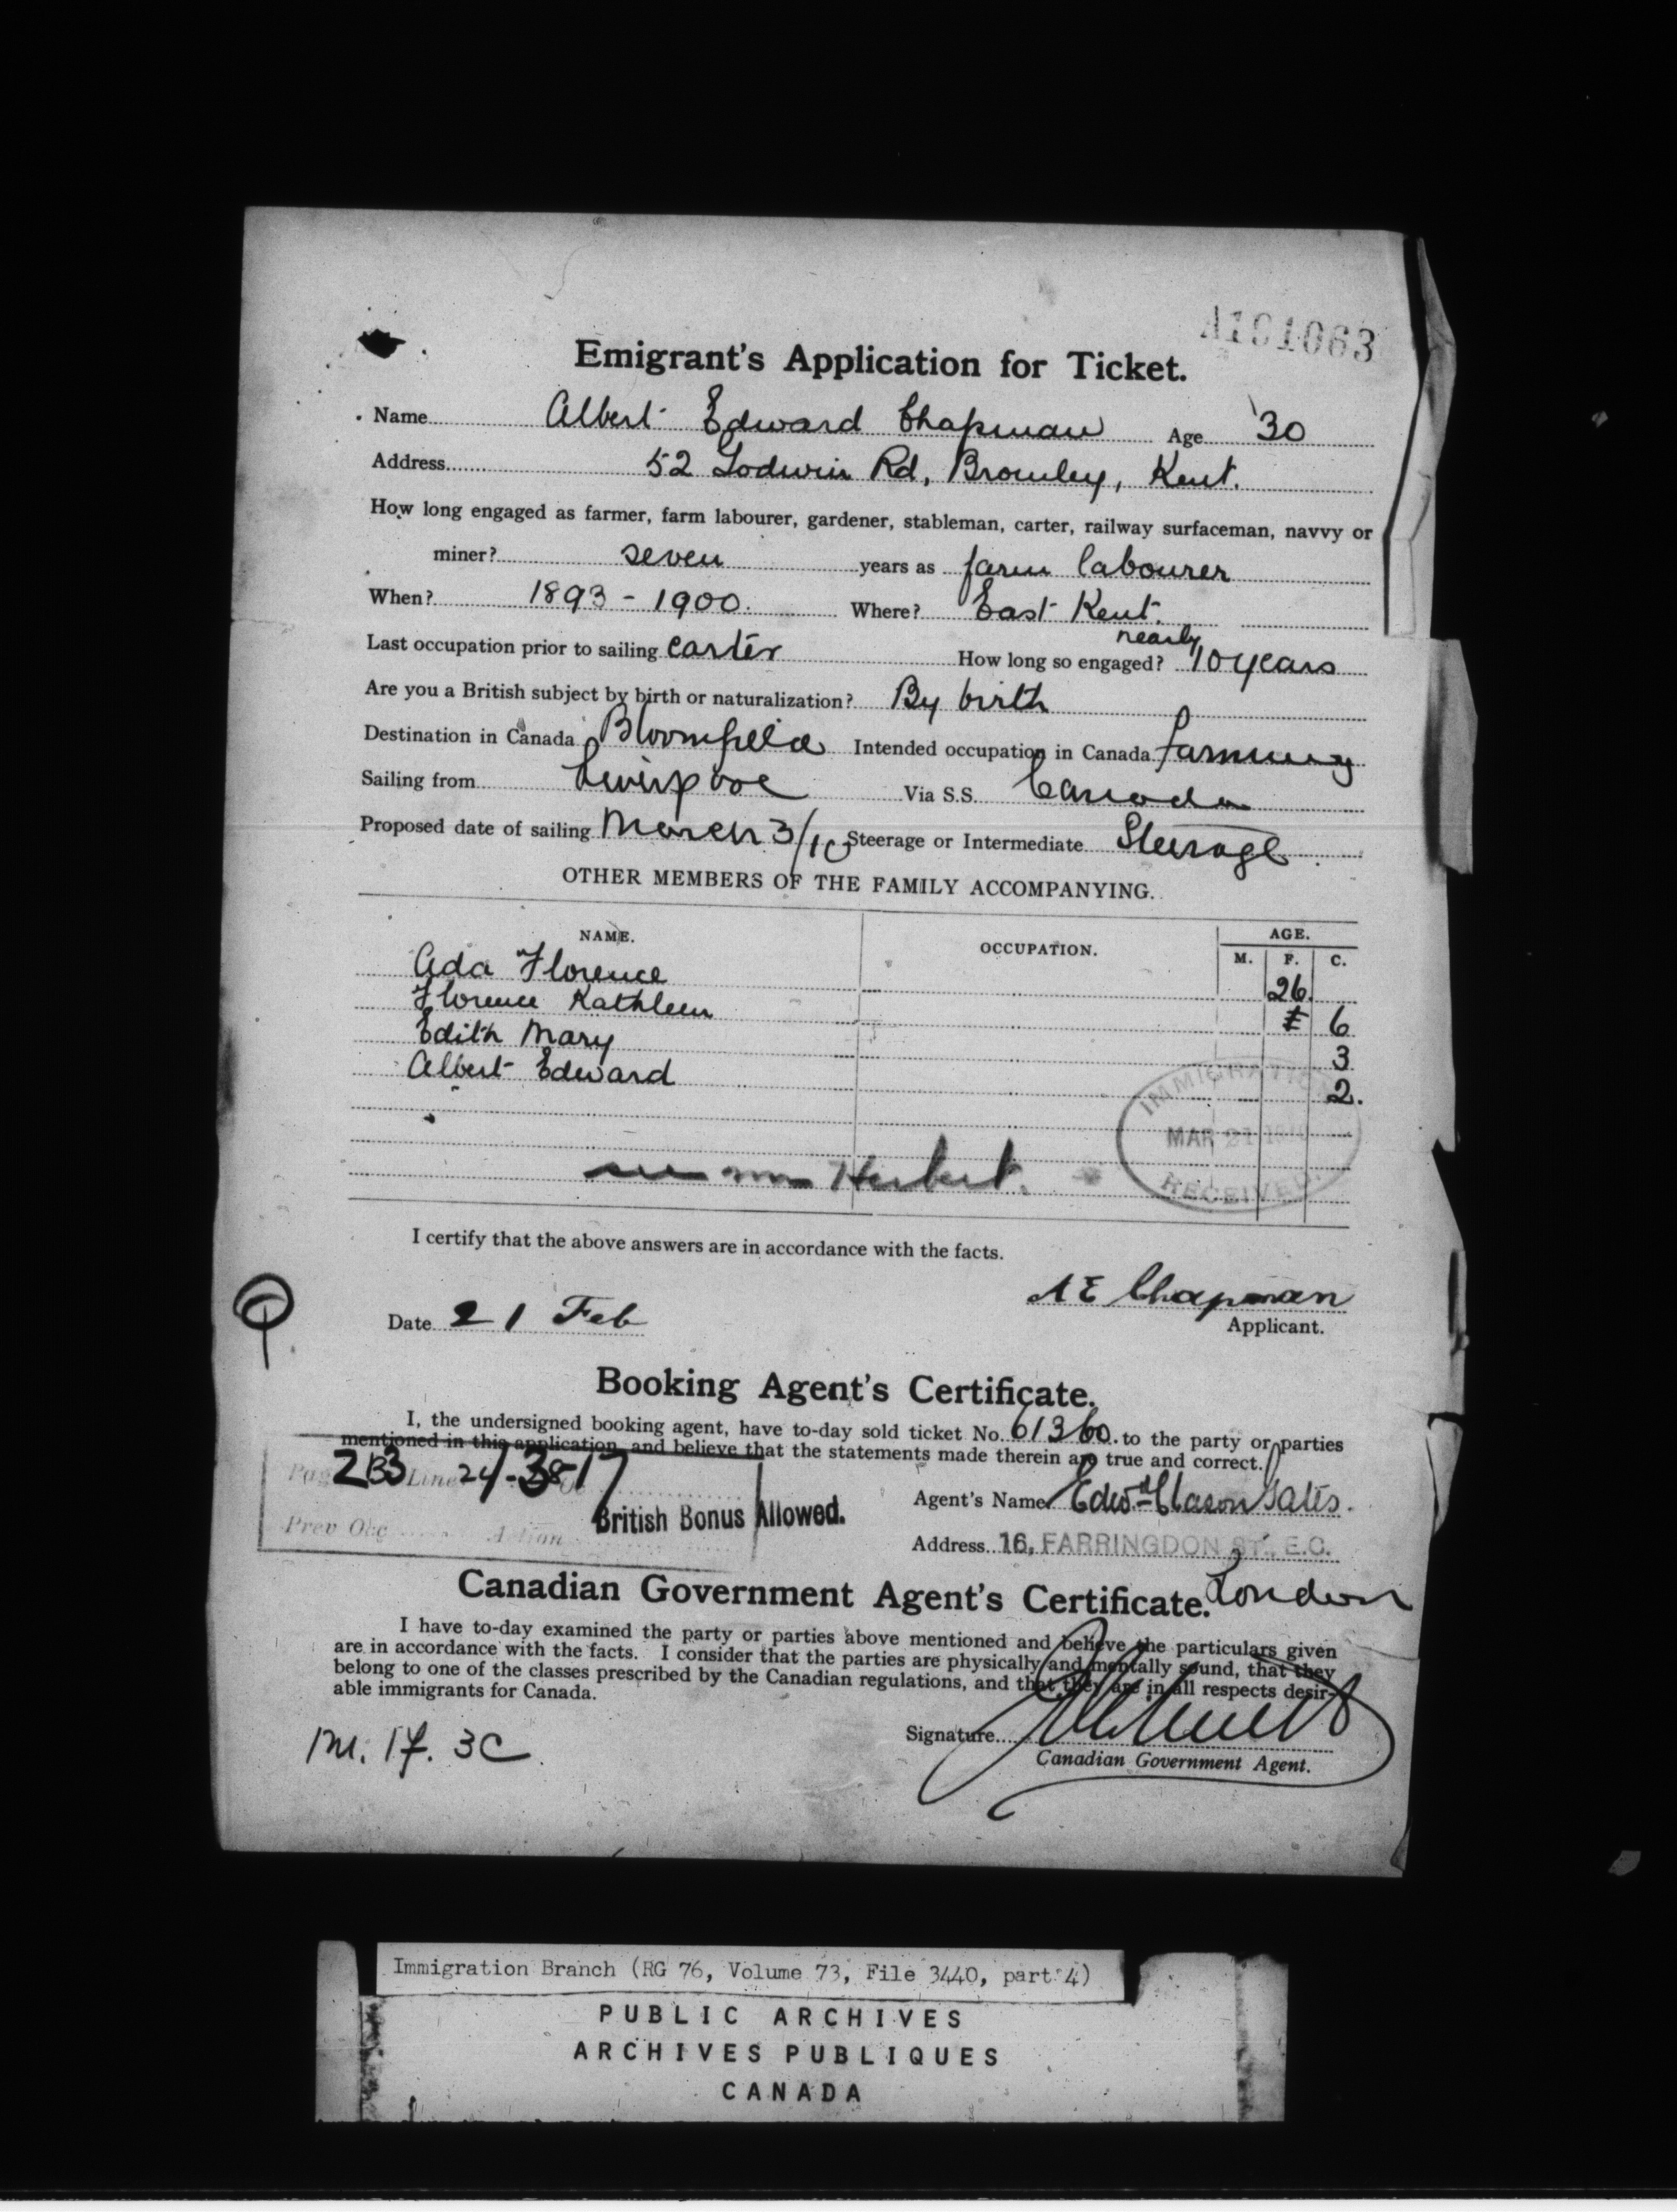 A191063
Emigrant's Application for Ticket.
Name Albert Edward Chapman Age 30
Address 52 Godwin Rd, Bromley, Kent.
How long engaged as farmer, farm labourer, gardener, stableman, carter, railway surfaceman, navvy or
miner? seven years as farm labourer
When? 1893 - 1900. Where? East Kent.
Last occupation prior to sailing carter How long so engaged? nearly 10 years
Are you a British subject by birth or naturalization? By birth
Destination in Canada Bloomfield Intended occupation in Canada farming
Sailing from Liverpool Via S.S. Canada
Proposed date of sailing March 3/10 Steerage or Intermediate Steerage
OTHER MEMBERS OF THE FAMILY ACCOMPANYING.
NAME. OCCUPATION. AGE.
M. F. C.
Ada Florence 26.
Florence Kathleen 6
Edith Mary 3
Albert Edward 2.
IMMIGRATION
MAR 21
RECEIVED
Herbert.
I certify that the above answers are in accordance with the facts.
A E Chapman
Date 21 Feb Applicant.
Booking Agent's Certificate.
I, the undersigned booking agent, have to-day sold ticket No. 61360. to the party or parties
mentioned in this application, and believe that the statements made therein are true and correct.
Line
Agent's Name Edwd Clason Gates.
British Bonus Allowed.
Prev Obc Action
Address 16, FARRINGDON ST., E.C.
London
Canadian Government Agent's Certificate.
I have to-day examined the party or parties above mentioned and believe the particulars given
are in accordance with the facts. I consider that the parties are physically and mentally sound, that they
belong to one of the classes prescribed by the Canadian regulations, and that they are in all respects desir-
able immigrants for Canada.
1M. 1F. 3C
Signature
Canadian Government Agent.
Immigration Branch (RG 76, Volume 73, File 3440, part 4)
PUBLIC ARCHIVES
ARCHIVES PUBLIQUES
CANADA